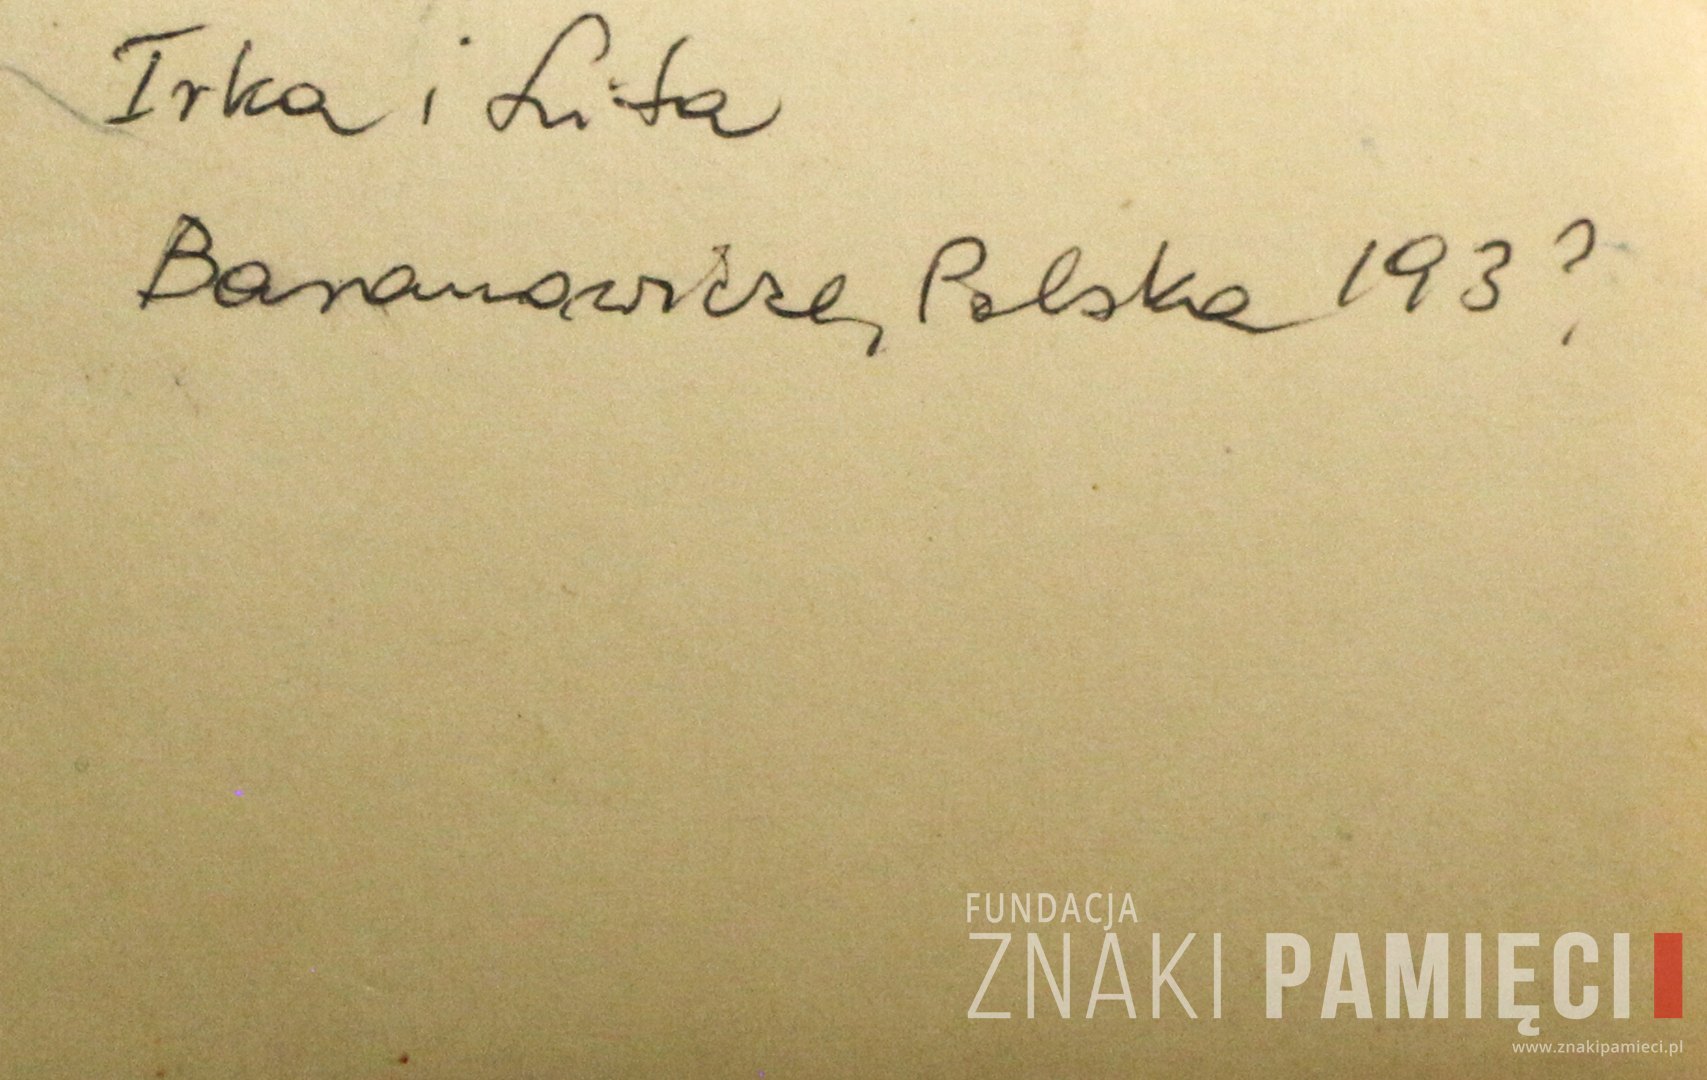 Irka i Luta
Baranowicze, Polska 193?
FUNDACJA
ZNAKI PAMIĘCI
www.znakipamieci.pl